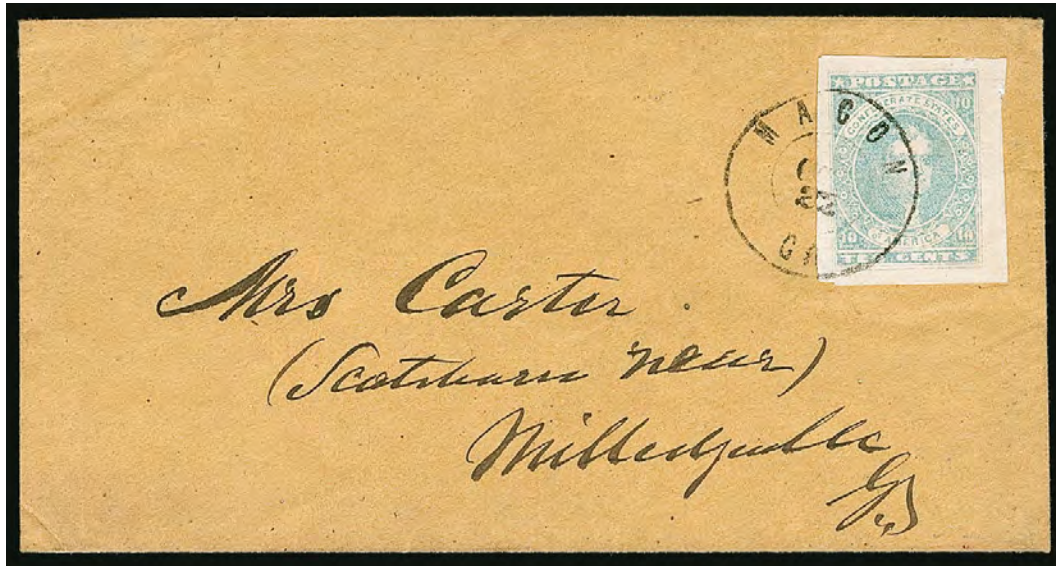 ★ POSTAGE ★
10
CONFEDERATE STATES
OF AMERICA
10 10
TEN CENTS
MACON
22
GA
Mrs Carter
(Scotsburn near)
Milledgeville
Ga